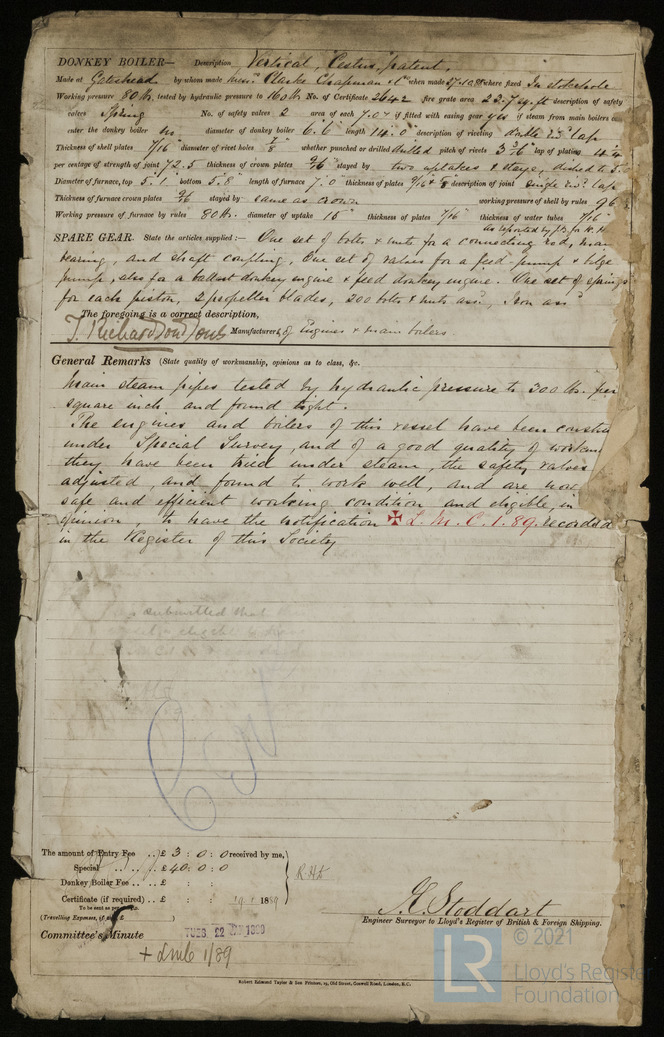 DONKEY BOILER— Description Vertical, "Cestus" patent.
Made at Gateshead by whom made Mess.rs Clarke Chapman & Co when made 27.10.88 where fixed In stokehole
Working pressure 80 lb. tested by hydraulic pressure to 160 lb No. of Certificate 2642 fire grate area 22.7 sq. ft description of safety
valves Spring No. of safety valves 2 area of each 7.07 if fitted with easing gear yes if steam from main boilers c
enter the donkey boiler no diameter of donkey boiler 6.6" length 14.0" description of riveting double riv. lap
Thickness of shell plates 7/16 diameter of rivet holes 7/8 whether punched or drilled drilled pitch of rivets lap of plating
per centage of strength of joint 72.5 thickness of crown plates 9/16 stayed by two uptakes & stays, dished to 5
Diameter of furnace, top 5.1" bottom 5.8" length of furnace 7.0" thickness of plates description of joint single riv. lap
Thickness of furnace crown plates 9/16 stayed by same as crown working pressure of shell by rules 96
Working pressure of furnace by rules 80 lb. diameter of uptake 15" thickness of plates 7/16 thickness of water tubes 7/16
as reported by
SPARE GEAR. State the articles supplied:— One set of bolts & nuts for a connecting rod, main
bearing, and shaft coupling, One set of valves for a feed pump & bilge
pump, also for a ballast donkey engine & feed donkey engine. One set of springs
for each piston, 2 propeller blades, 200 bolts & nuts ass.d, Iron ass.d
The foregoing is a correct description,
T. Richardson & Sons Manufacturers of Engines & main boilers
General Remarks (State quality of workmanship, opinions as to class, &c.
Main steam pipes tested by hydraulic pressure to 300 lb. per
square inch and found tight.
The engines and boilers of this vessel have been constru
under Special Survey, and of a good quality of workm
they have been tried under steam, the safety valves
adjusted, and found to work well, and are now
safe and efficient working condition and eligible, in
opinion, to have the notification ✠ L.M.C. 1.89. recorded
in the Register of this Society
submitted that
eligible to
The amount of Entry Fee .. £ 3 : 0 : 0 received by me,
Special .. .. £ 40 : 0 : 0
Donkey Boiler Fee .. £ : :
Certificate (if required) .. £ : : 19.1 1889
To be sent as per
(Travelling Expenses, if any, £ )
Committee's Minute
TUES. 22 JAN 1889
+ LMC 1/89
J.C. Stoddart
Engineer Surveyor to Lloyd's Register of British & Foreign Shipping.
Robert Edmund Taylor & Son Printers, 19, Old Street, Goswell Road, London, E.C.
LR
© 2021
Lloyd's Register
Foundation